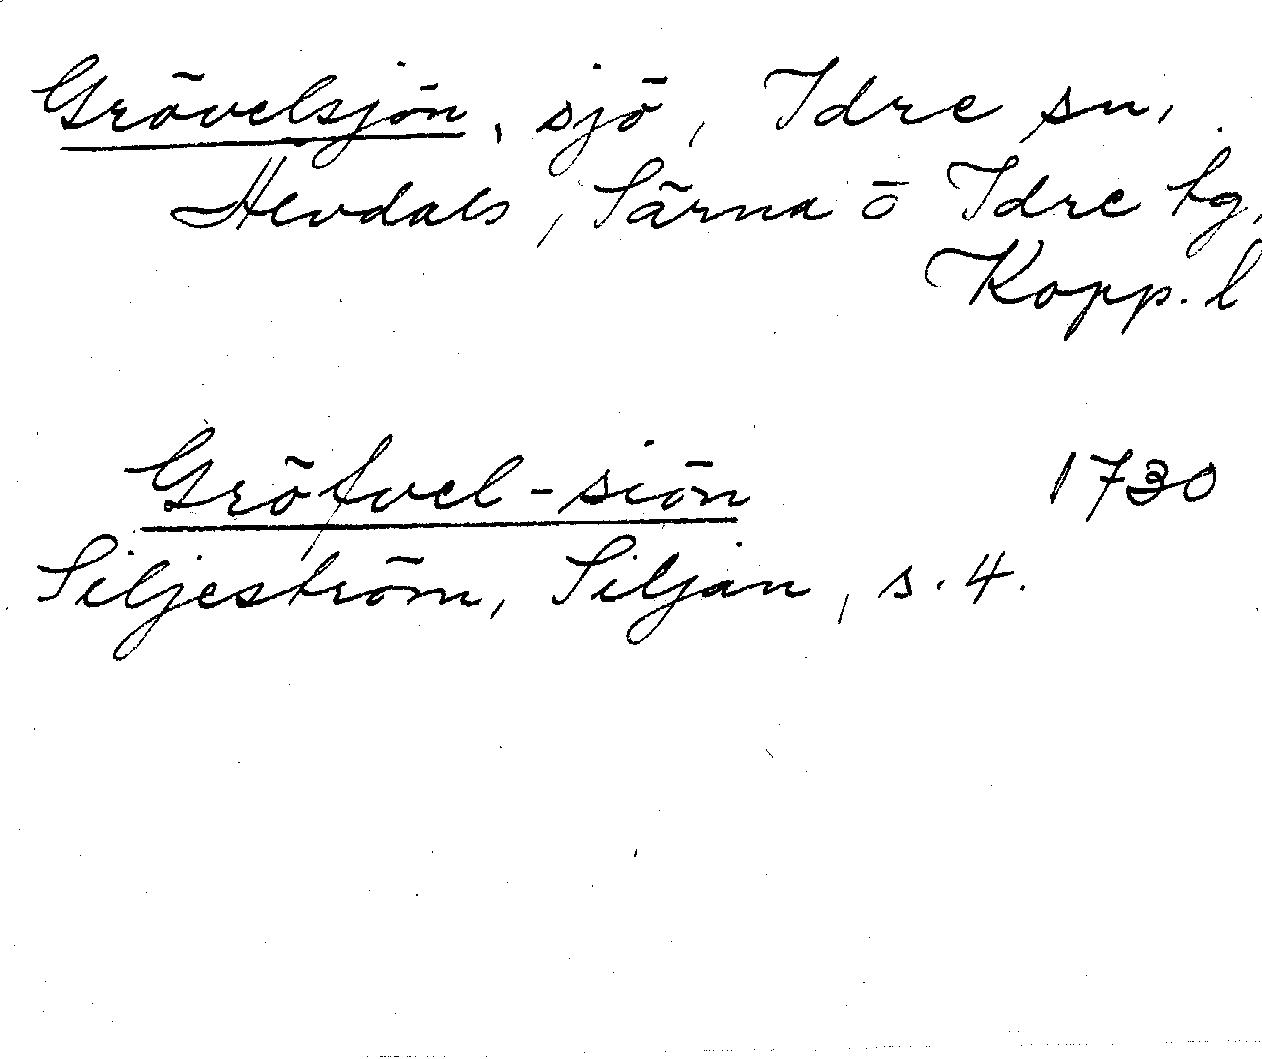 Grövelsjön, sjö, Idre sn,
Älvdals, Särna ö Idre tg,
Kopp. l
Gröfvel-siön 1730
Siljeström, Siljan, s. 4.